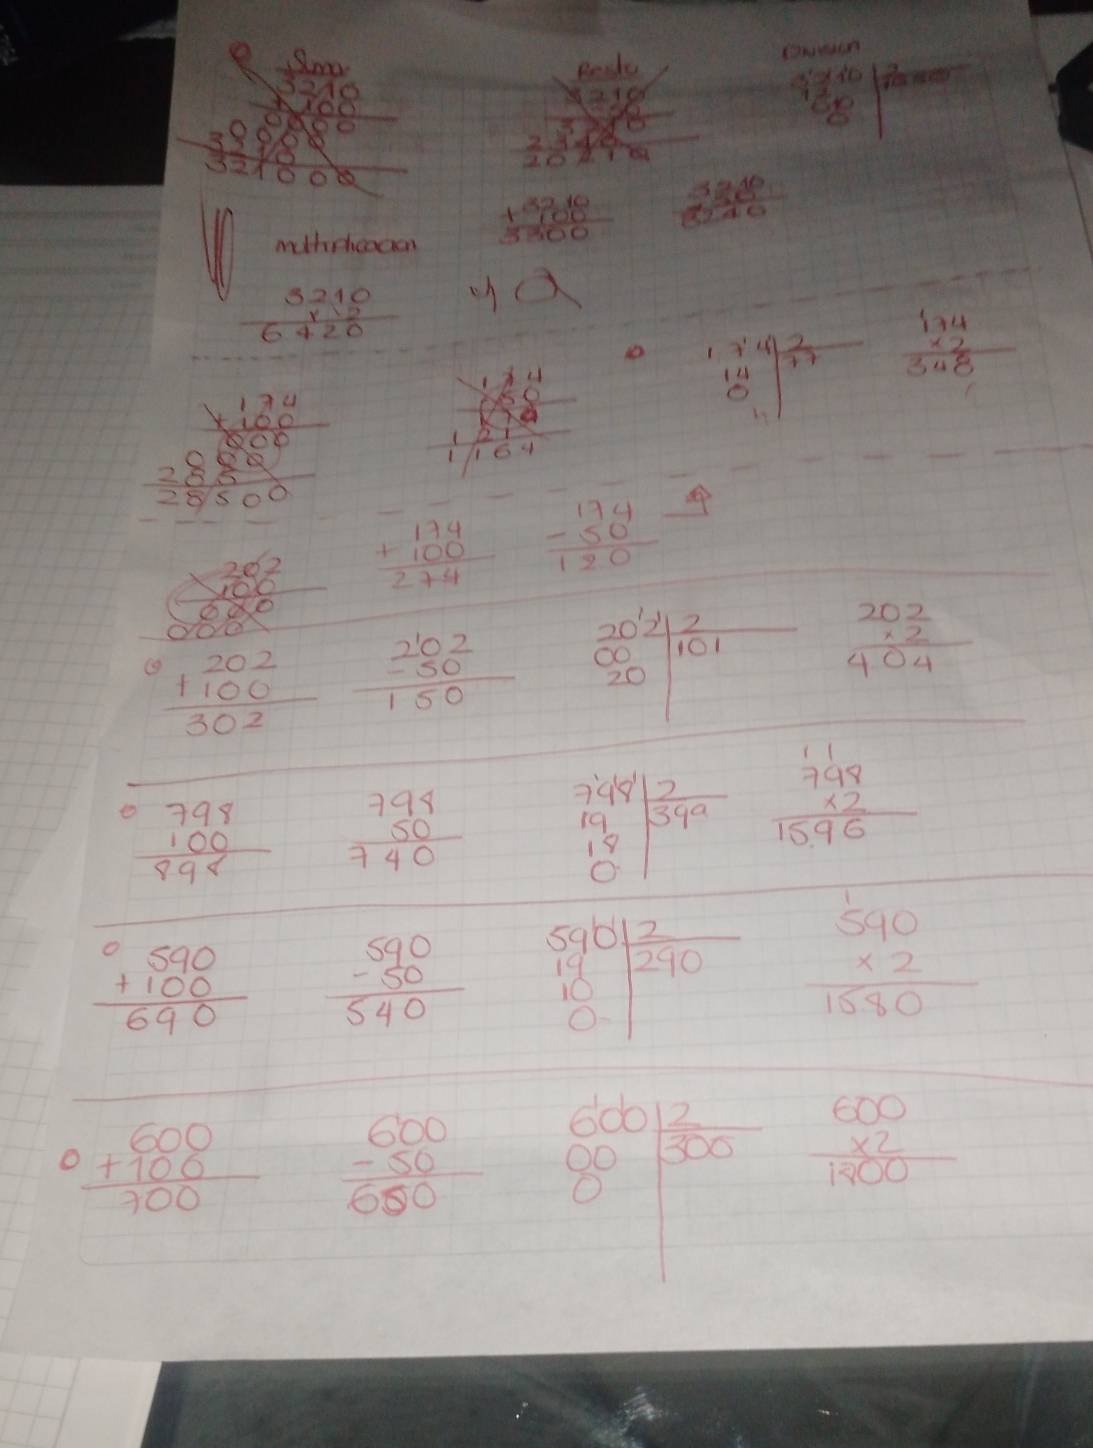 Suma
3210
+100
0000
0000
3210
321000
Resta
3210
Division
3210 2
0
3210
+ 100
3300
3210
50
3240
multiplicacion
3210
x 2
6420
174
+100
000
000
285
28500
174
50
1164
174 2
14 77
0
174
x2
348
174
+ 100
274
174
- 50
120
202
100
000
000
202
+100
302
202
-50
150
202 2
00 101
20
202
x2
404
798
100
898
798
50
740
798 2
19 399
18
0
798
x2
1596
590
+100
690
590
-50
540
590 2
19 290
10
0
590
x 2
1580
600
+100
700
600
-50
650
600 2
00 300
0
600
x2
1200